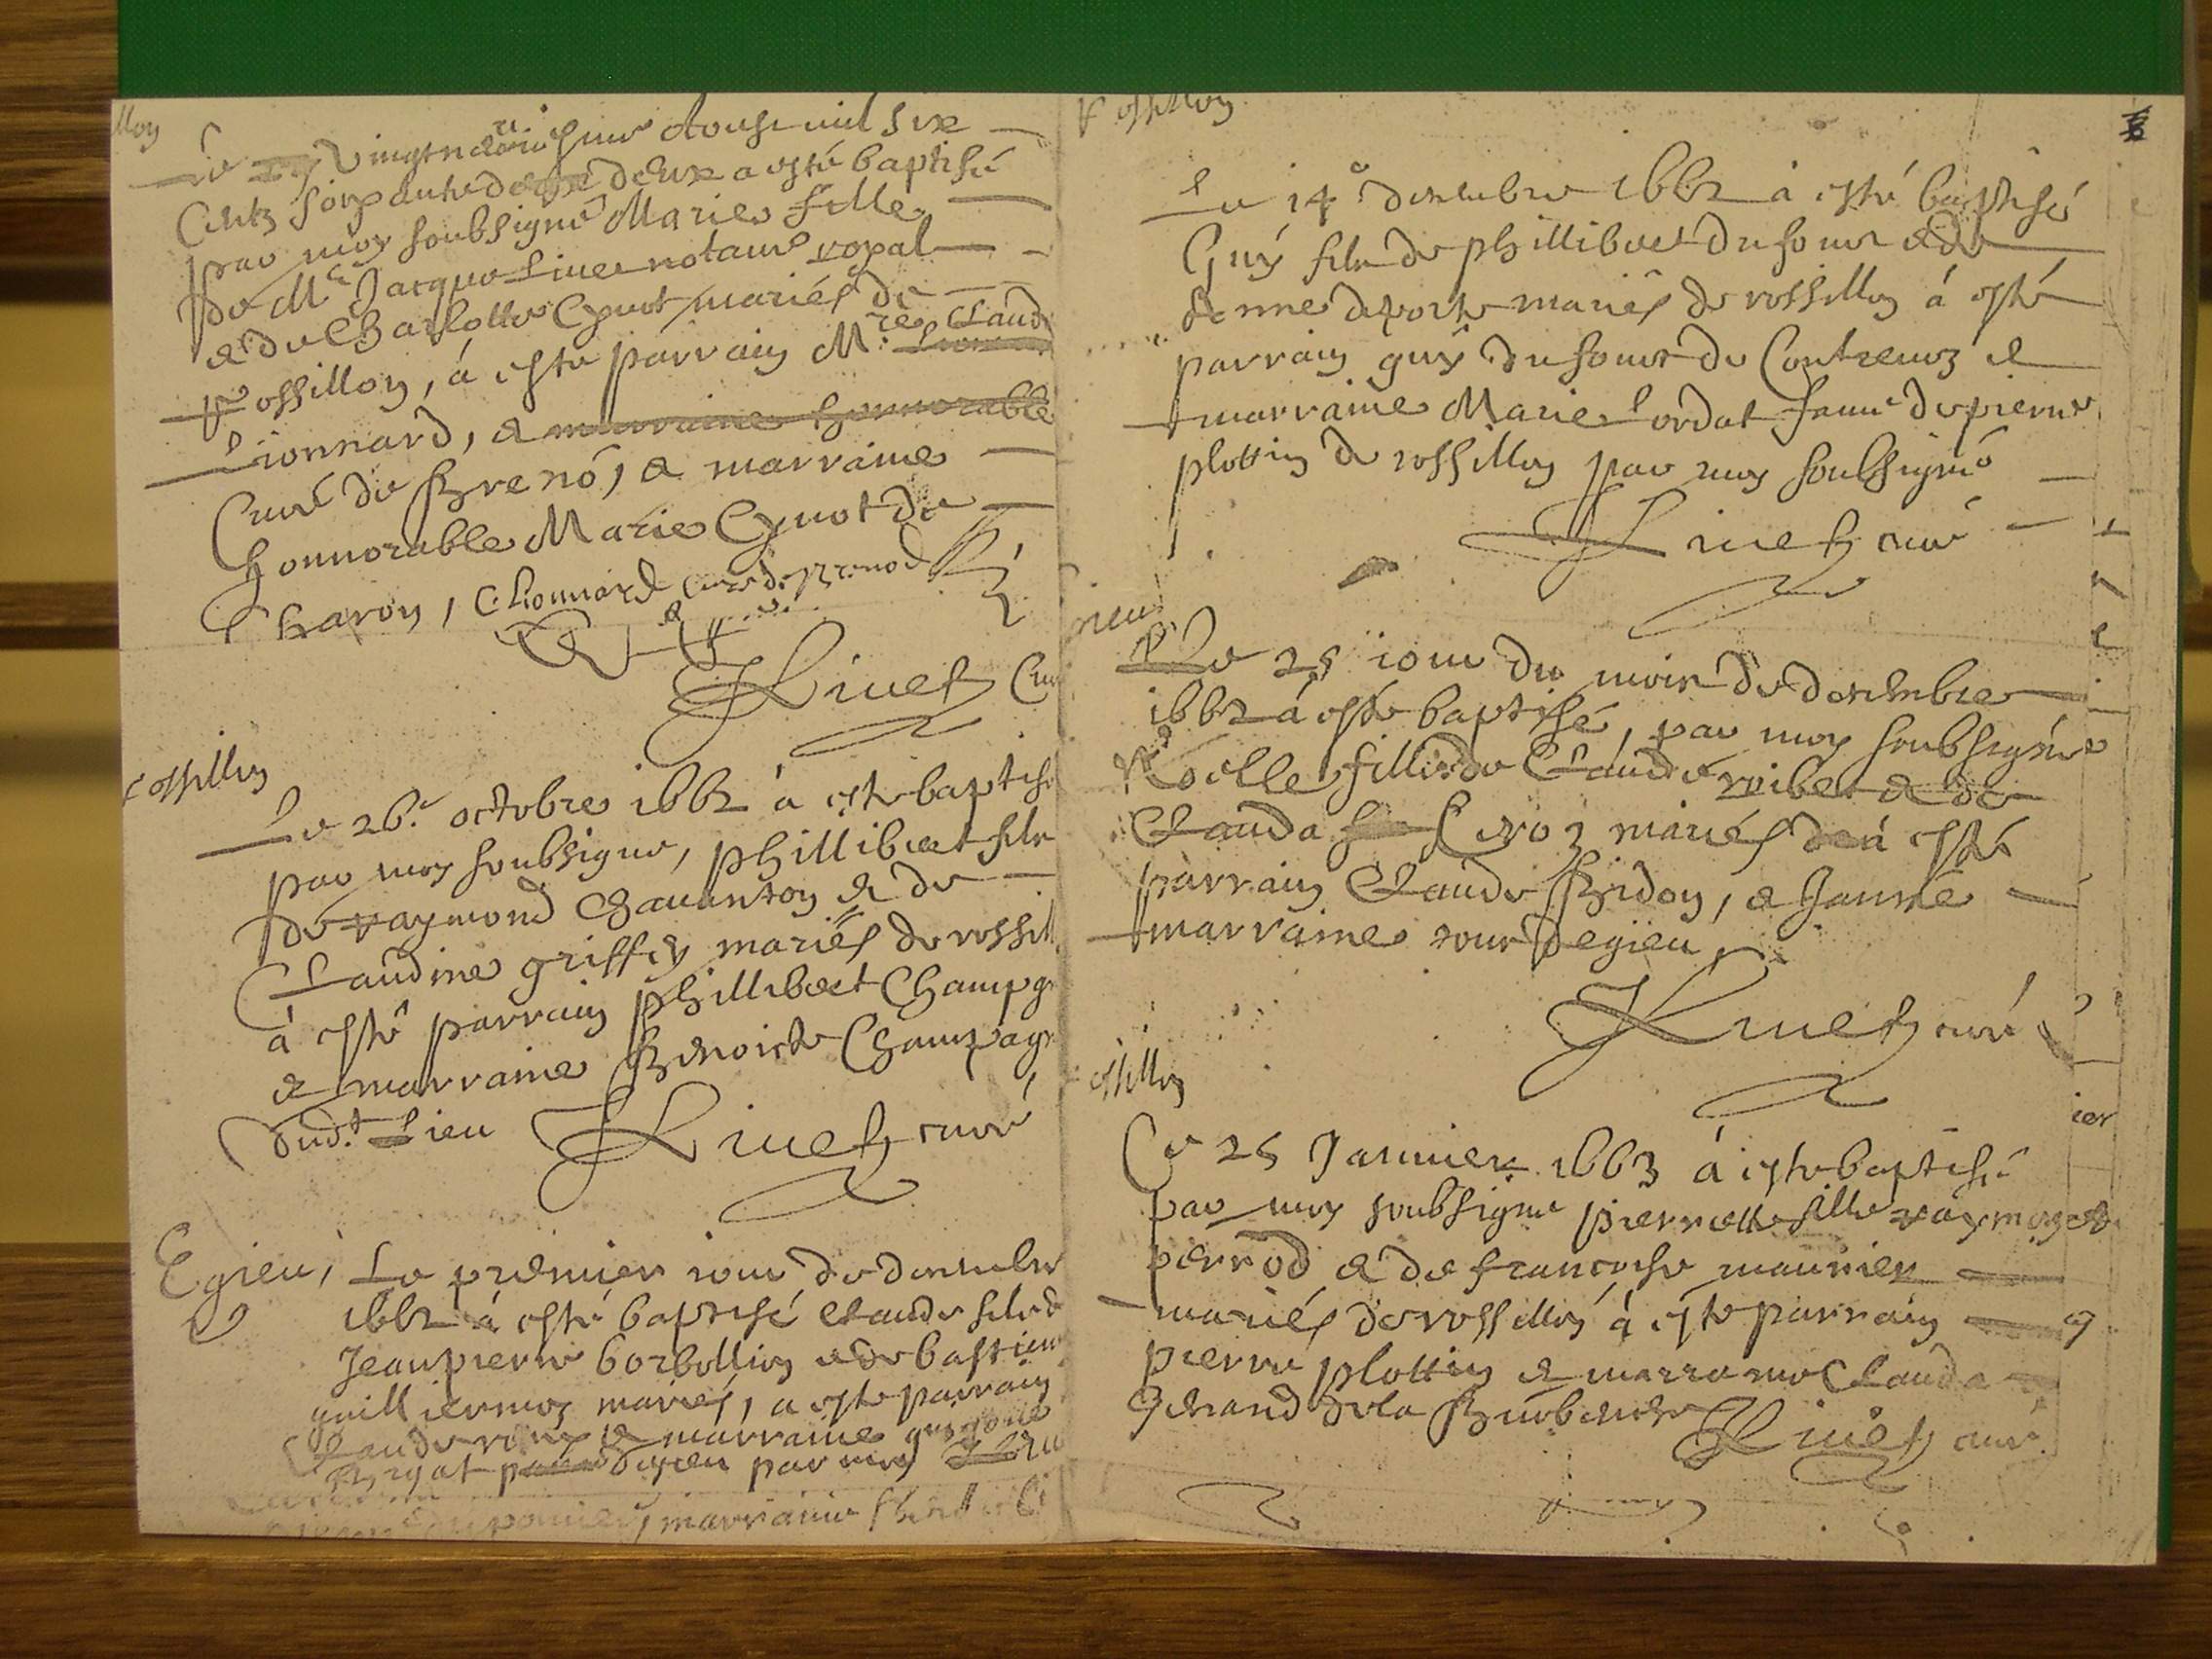 lloy
Le vingt neufie jour d'oust mil six
Centz soixante deux a esté baptisé
par moy soubsigné Marie fille
de Me Jacque Liuet notaire royal
& de Charlotte Cyuot mariés de
Rossillon, á esté parrain Mre Claude
Lionnard, & marraine honnorable
Curé de Brenô, & marraine
honnorable Marie Cyuot de
Charon, C. Lionnard curé de Brenod
Liuet Cu
rossillon
Le 26.e octobre 1662 à esté baptisé
par moy soubsigne, phillibert fils
de raymond Chauanton & de
Claudine griffen mariés de rossill
à esté parrain phillibert Champg
& marraine Benoicte Champagn
dud.t Lieu Liuet curé
Egieu, Le premier iour de decembre
1662 á esté baptisé claude fils de
Jeanpierre borbollion & de bastiene
guilliermoz mariés, a esté parrain
Claude & marraine
degieu par moy
marraine
Rossillon
Le 14e decembre 1662 à esté baptisé
Guy fils de phillibert du four & de
mariés de rossillon á esté
parrain guy du four de Contreuoz &
marraine Marie Lordat fame de pierre
plottin de rossillon par moy soubsigné
Liuet curé
gieu
Le 25 iour du mois de decembre
1662 á esté baptisé, par moy soubsigné
Noelle fillie de Claude ribet & de
Clauda Croz mariés á esté
parrain Claude Bidon, & Janne
marraine tous degieu
Liuet curé
ossillon
Ce 25 Januier 1663 á esté baptisé
par moy soubsigne pierrette fille raymond
perrod & de francoise maurier
mariés de rossillon á esté parrain
pierre plottin & marrame Clauda
Gerand de la Burbanche
Liuet curé